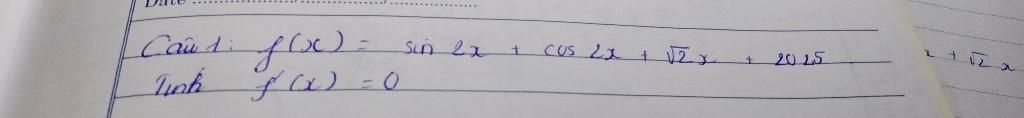 Date
Câu 1: f(x) = sin 2x + cos 2x + √2 x + 2025
Tính f'(x) = 0
x + √2 x